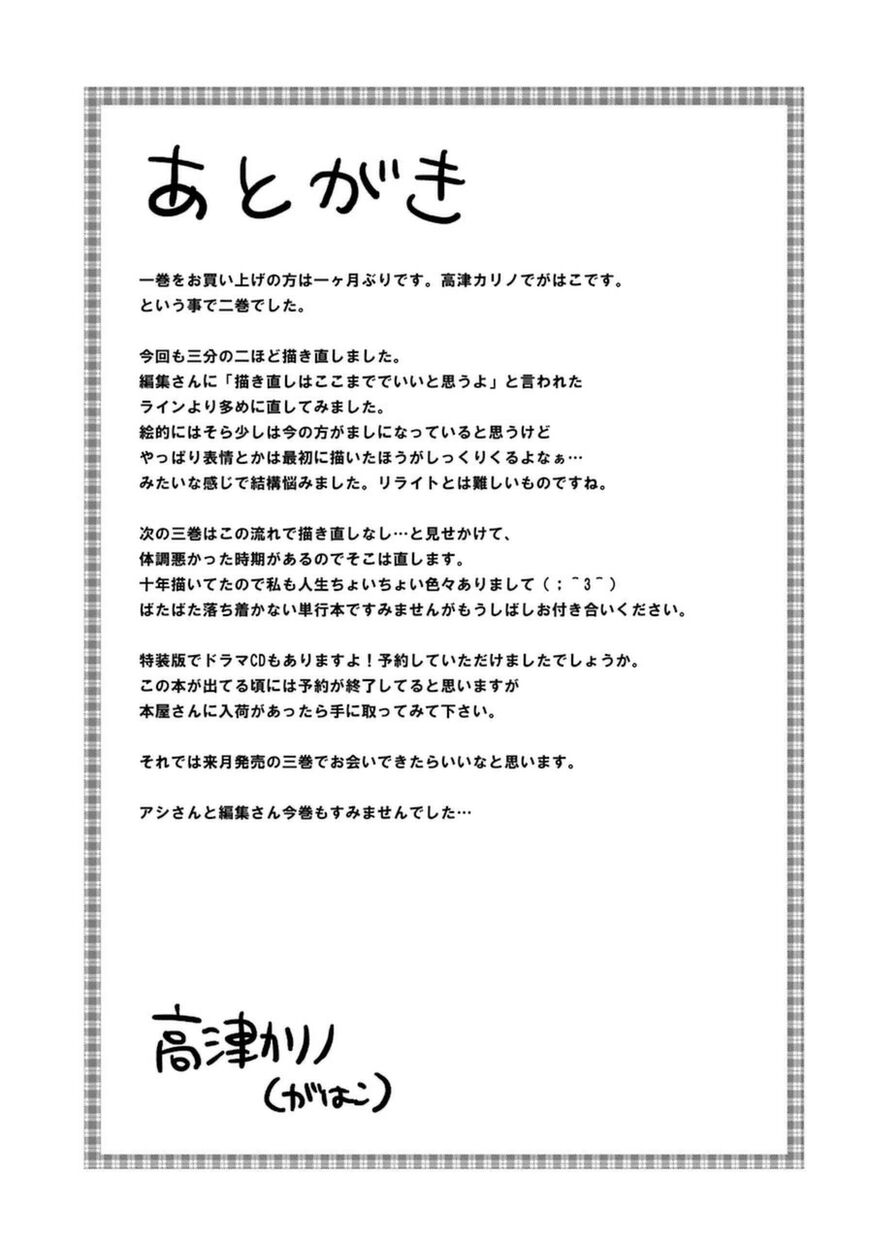 あとがき
一巻をお買い上げの方は一ヶ月ぶりです。高津カリノでがはこです。
という事で二巻でした。
今回も三分の二ほど描き直しました。
編集さんに「描き直しはここまででいいと思うよ」と言われた
ラインより多めに直してみました。
絵的にはそら少しは今の方がましになっていると思うけど
やっぱり表情とかは最初に描いたほうがしっくりくるよなぁ…
みたいな感じで結構悩みました。リライトとは難しいものですね。
次の三巻はこの流れで描き直しなし…と見せかけて、
体調悪かった時期があるのでそこは直します。
十年描いてたので私も人生ちょいちょい色々ありまして（；＾3＾）
ばたばた落ち着かない単行本ですみませんがもうしばしお付き合いください。
特装版でドラマCDもありますよ！予約していただけましたでしょうか。
この本が出てる頃には予約が終了してると思いますが
本屋さんに入荷があったら手に取ってみて下さい。
それでは来月発売の三巻でお会いできたらいいなと思います。
アシさんと編集さん今巻もすみませんでした…
高津カリノ
（がはこ）